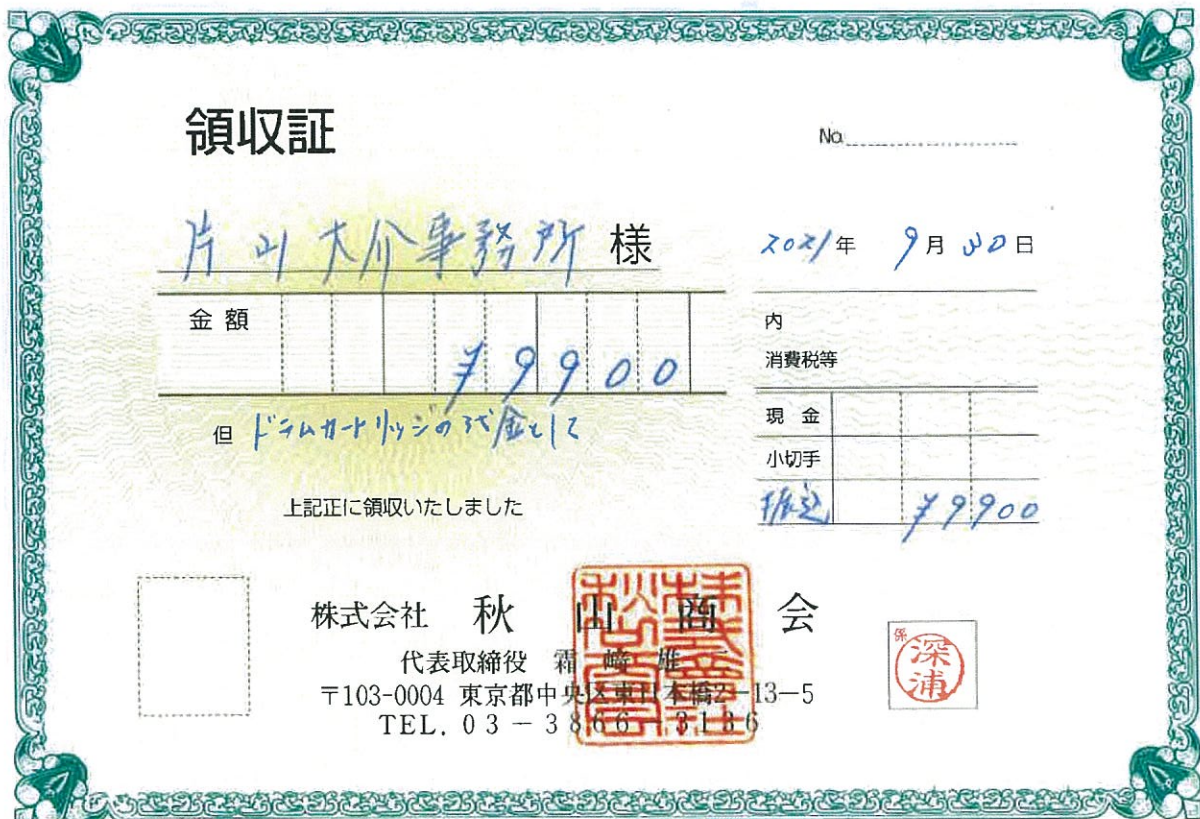 領収証
No.
片山大介事務所 様
2021年 9月30日
金額 ¥9900
但 ドラムカートリッジの代金として
上記正に領収いたしました
内
消費税等
現金
小切手
振込 ¥9900
株式会社 秋山商会
代表取締役 霜﨑雄二
〒103-0004 東京都中央区東日本橋2-13-5
TEL. 03-3866-3136
係 深浦